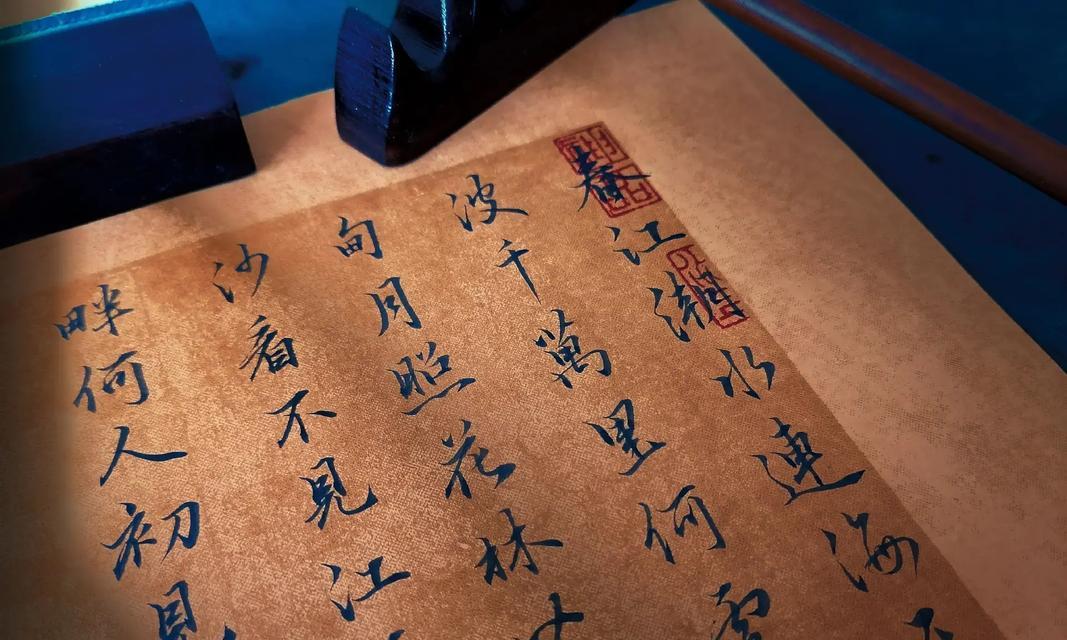 春江潮水連海
波千萬里何處
甸月照花林
沙看不見江
畔何人初見